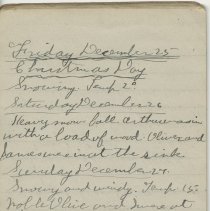 Friday December 25
Christmas Day
Snowing. Temp 2°
Saturday December 26
Heavy snow fall. Arthur was in
with a load of wood. Oliver and
James were in at the sink
Sunday December 27.
Snowy and windy. Temp 15°
and